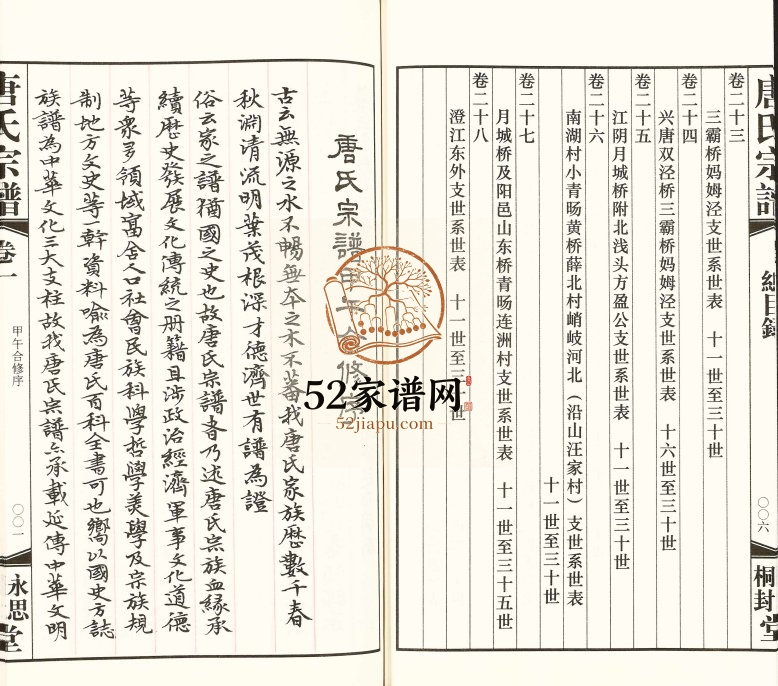 唐氏宗譜
總目錄
〇〇六
桐封堂
卷二十三
三霸桥妈姆泾支世系世表 十一世至三十世
卷二十四
兴唐双泾桥三霸桥妈姆泾支世系世表 十六世至三十世
卷二十五
江阴月城桥附北浅头方盈公支世系世表 十一世至三十世
卷二十六
南湖村小青旸黄桥薛北村峭岐河北（沿山汪家村）支世系世表
十一世至三十世
卷二十七
月城桥及阳邑山东桥青旸连洲村支世系世表 十一世至三十五世
卷二十八
澄江东外支世系世表 十一世至三十世
唐氏宗譜甲午合修序
古云無源之水不暢無本之木不蕃我唐氏家族歷數千春
秋淵清流明葉茂根深才德濟世有譜為證
俗云家之譜猶國之史也故唐氏宗譜者乃述唐氏宗族血緣承
續歷史發展文化傳統之册籍且涉政治經濟軍事文化道德
等衆多領域寓含人口社會民族科學哲學美學及宗族規
制地方文史等一幹資料喻為唐氏百科全書可也嚮以國史方誌
族譜為中華文化三大支柱故我唐氏宗譜亦承載延傳中華文明
唐氏宗譜
卷一
甲午合修序
〇〇一
永思堂
52家谱网
52jiapu.com